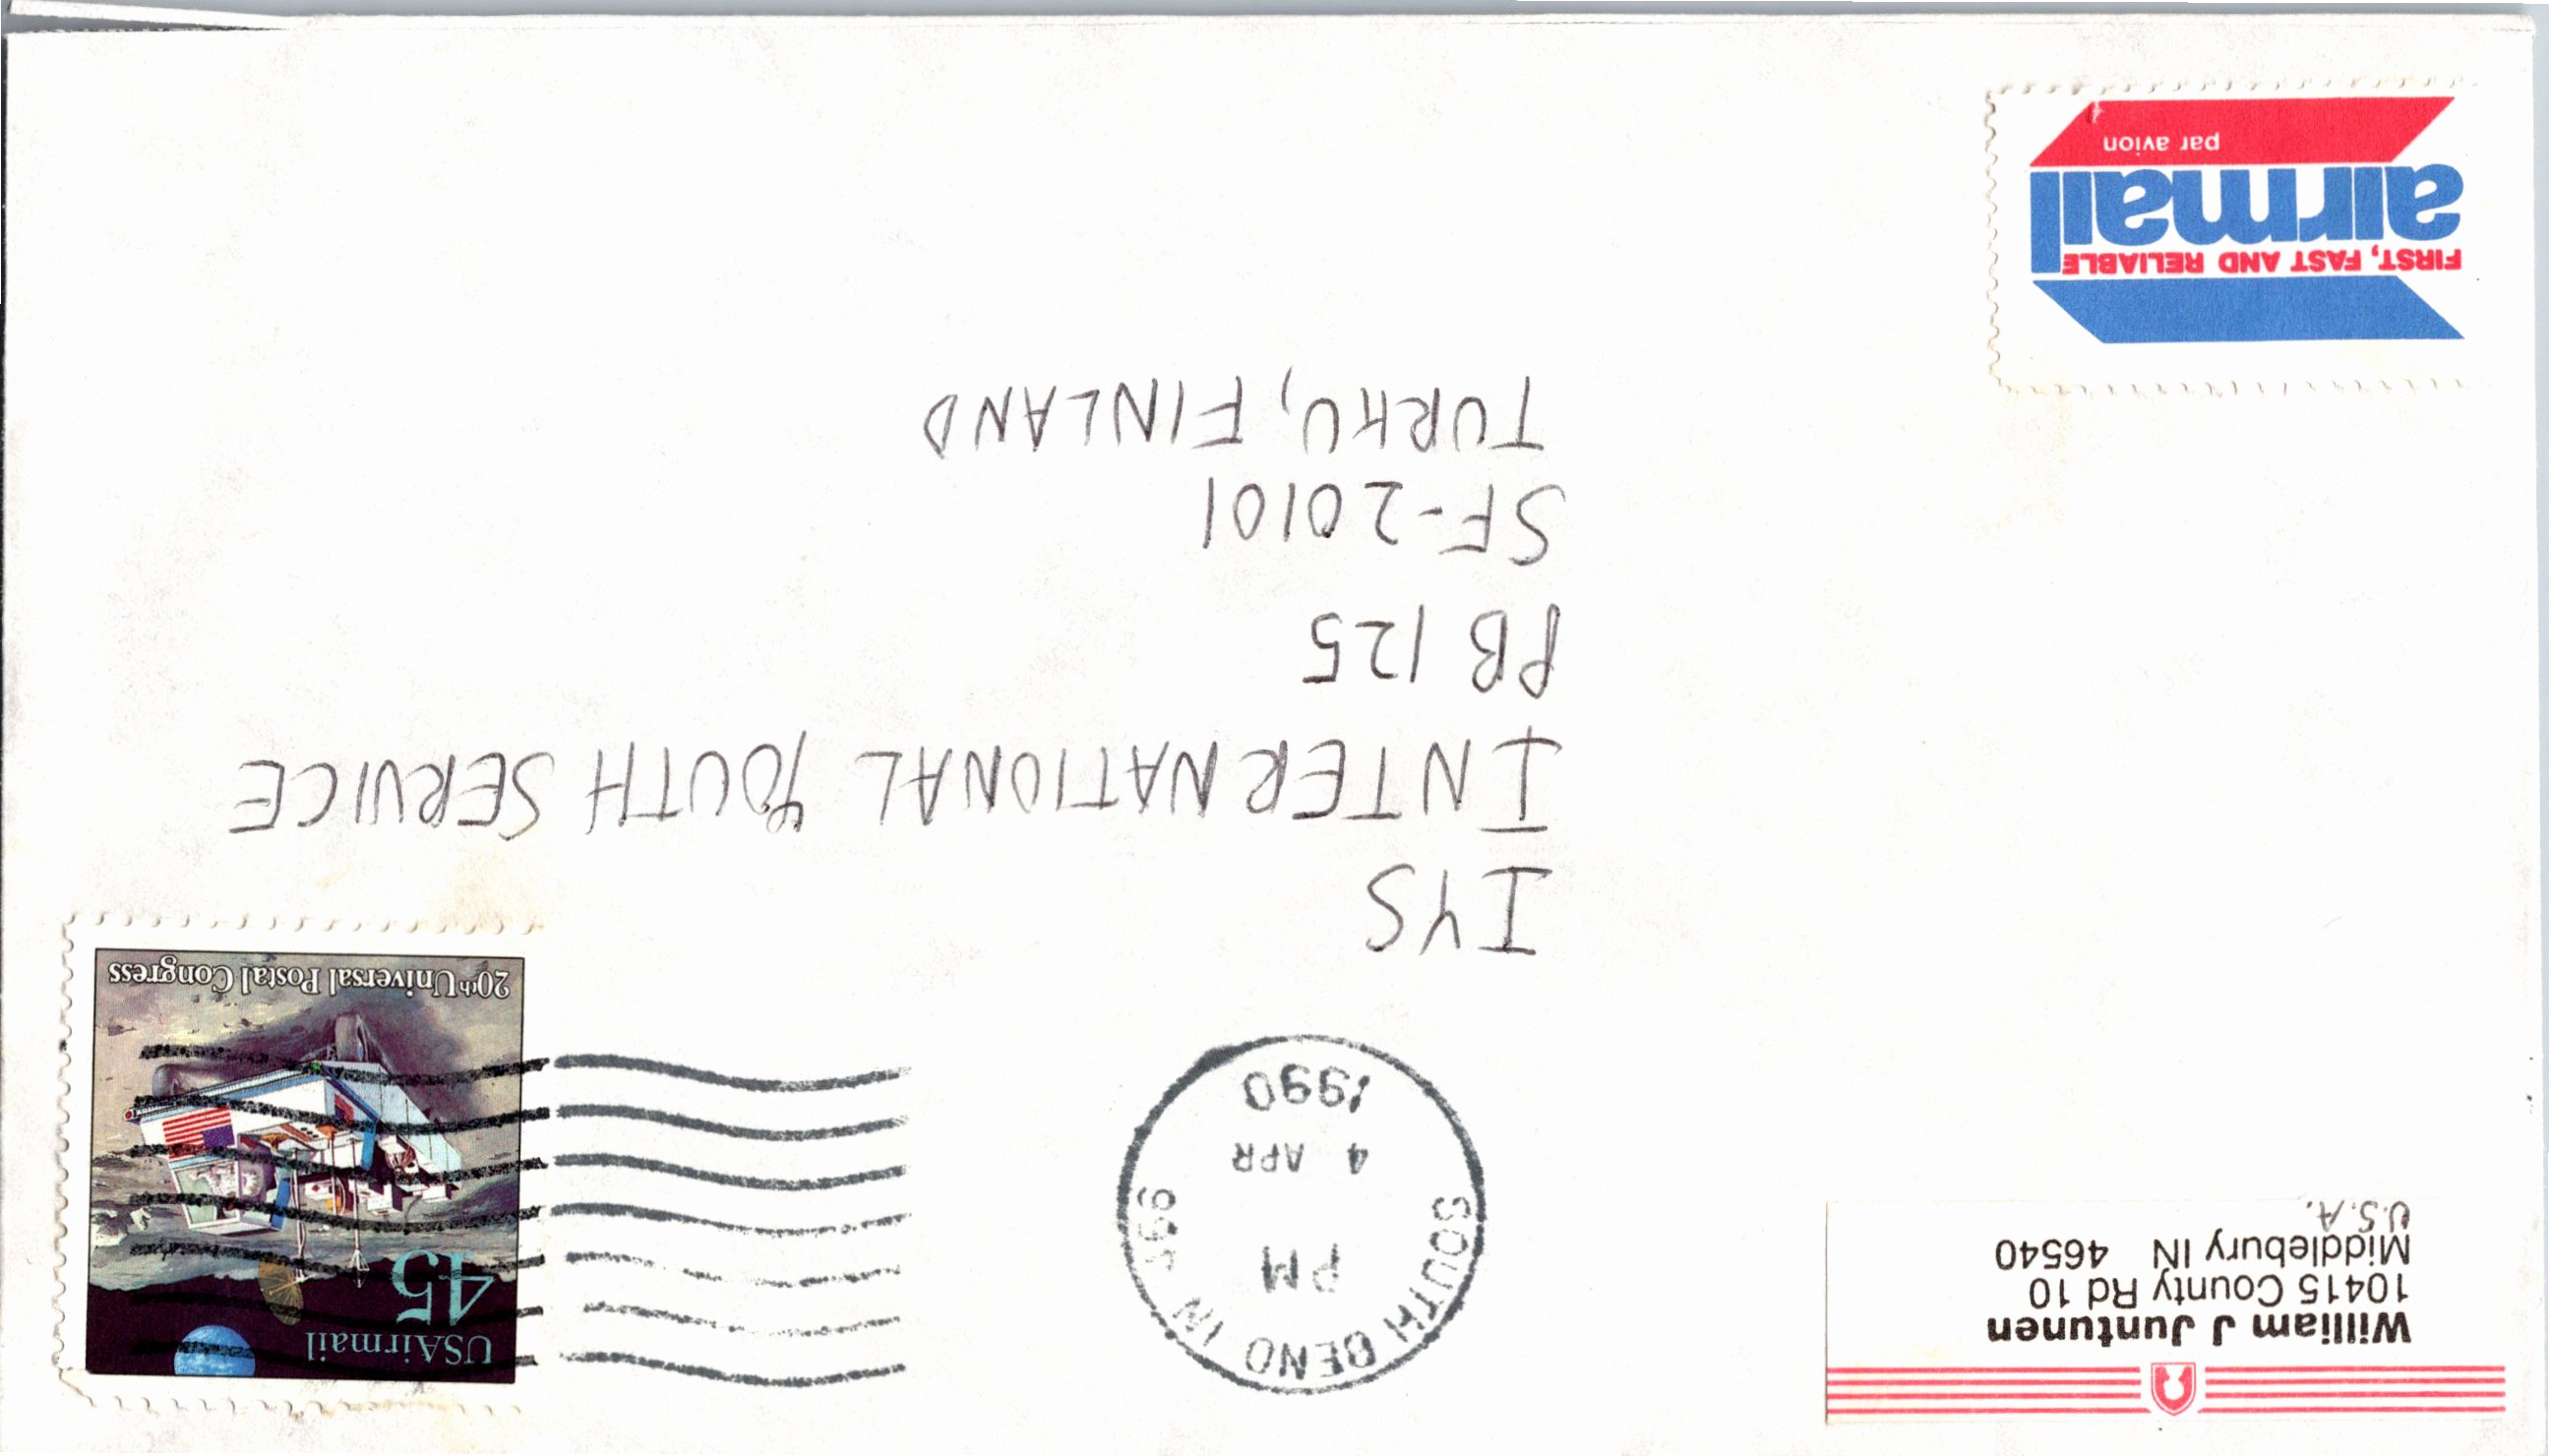 William J Juntunen
10415 County Rd 10
Middlebury IN 46540
U.S.A.
SOUTH BEND IN 466
PM
4 APR
1990
USAirmail
45
20th Universal Postal Congress
IYS
INTERNATIONAL YOUTH SERVICE
PB 125
SF-20101
TURKU, FINLAND
FIRST, FAST AND RELIABLE
airmail
par avion